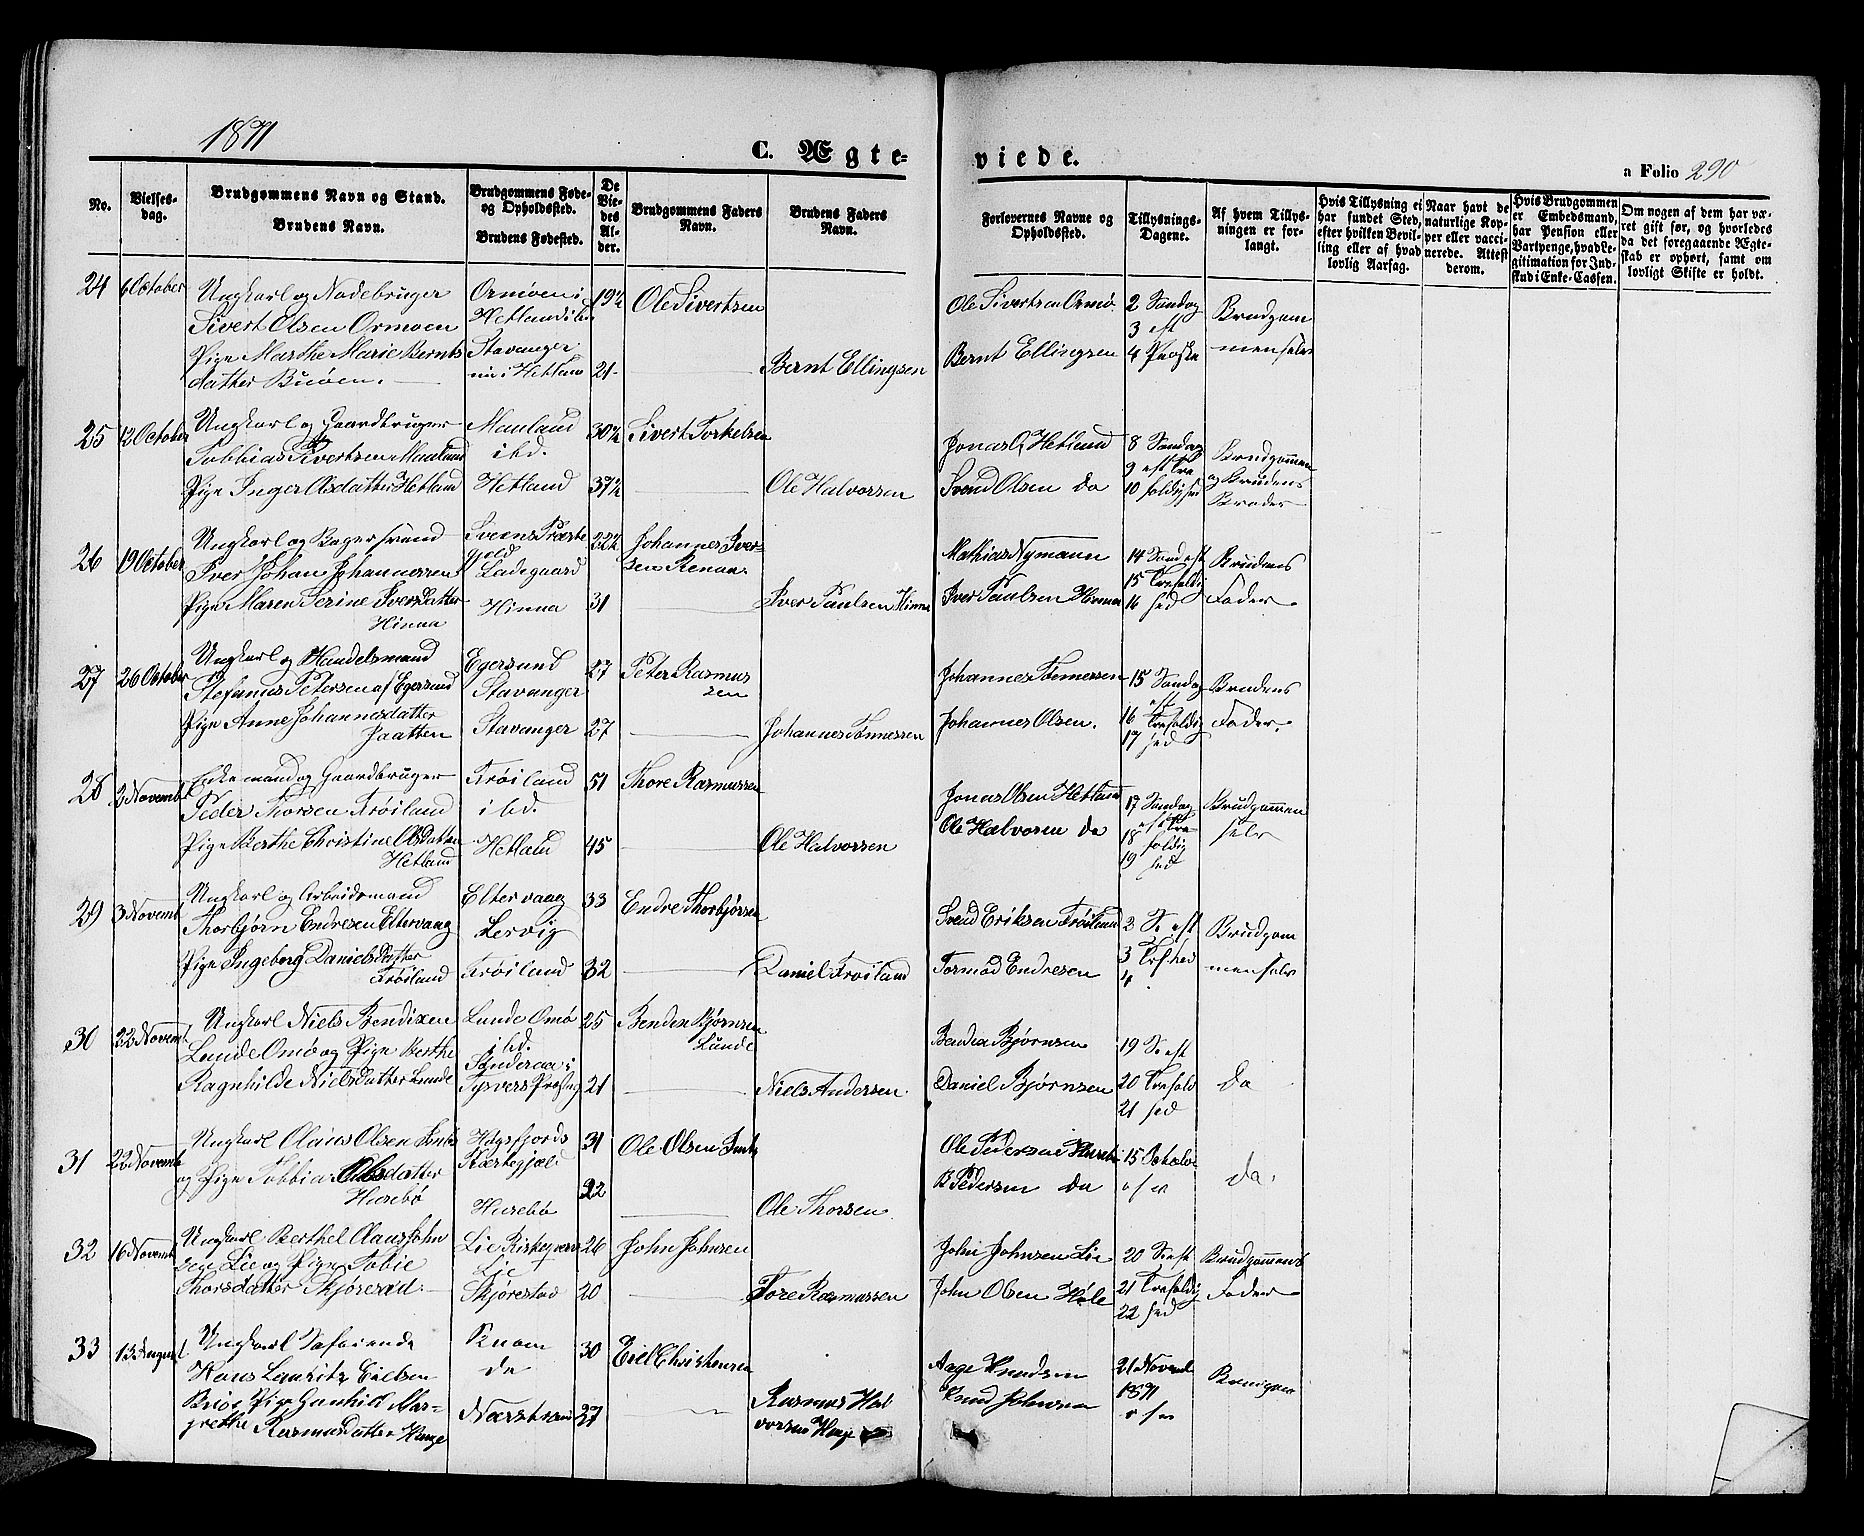 1871
C. Ægte-
viede.
a Folio 290
No.
Vielses-
dag.
Brudgommens Navn og Stand.
Brudens Navn.
Brudgommens Føde-
og Opholdssted.
Brudens Fødested.
De
Vie-
des
Al-
der.
Brudgommens Faders
Navn.
Brudens Faders
Navn.
Forlovernes Navne og
Opholdssted.
Tillysnings-
Dagene.
Af hvem Tillys-
ningen er for-
langt.
Hvis Tillysning ei
har fundet Sted,
efter hvilken Bevil-
ling eller af hvad
lovlig Aarsag.
Naar havt de
naturlige Kop-
per eller vacci-
nerede. Attest
derom.
Hvis Brudgommen
er Embedsmand,
har Pension eller
Vartpenge, hvad Le-
gitimation for Ind-
skud i Enke-Cassen.
Om nogen af dem har væ-
ret gift før, og hvorledes
da det foregaaende Ægte-
skab er ophørt, samt om
lovligt Skifte er holdt.
24 6 October
Ungkarl og Nodebruger
Sivert Olsen Ormøen
Pige Marthe Marie Bernts
datter Buøen.
Ormøen i
Hetland ibd.
Stavanger
19¼
21
Ole Sivertsen
Bernt Ellingsen
Ole Sivertsen Ormø
Bernt Ellingsen
2 Søndag
3 eft
4 Paaske
Brudgom
men selv
25 12 October
Ungkarl og Gaardbruger
Tobbias Sivertsen Mauland
Pige Inger Olsdatter Hetland
Mauland
ibd.
Hetland
30¼
37¼
Sivert Torkelsen
Ole Halvorsen
Jonas O. Hetland
Svend Olsen do
8 Søndag
9 eft Tre
10 foldighed
Brudgommen
og Brudens
Broder
26 19 October
Ungkarl og Bagersvend
Iver Johan Johannessen
Pige Maren Serine Iversdatter
Hinna
Ladegaard
Hinna
31
Johannes Iver-
sen
Iver Paulsen Hinna
Mathias Nymann
Iver Paulsen Hinna
14 Sønd eft
15 Trefoldig
16 hed
Brudens
Fader
27 26 October
Ungkarl og Handelsmand
Stefanus Petersen af Egersund
Pige Anne Johannesdatter
Jaatten
Egersund
Stavanger
Stavanger
27
27
Peter Rasmus
sen
Johannes Tønnessen
Johannes Tønnessen
Johannes Olsen.
15 Søndag
eft
16 Trefoldig
17 hed
Brudens
Fader.
28 2 Novemb
Enkemand og Gaardbruger
Peder Thorsen Frøiland
Pige Berthe Christine Olsdatter
Hetland
Frøiland
ibd.
Hetland
51
45
Thore Rasmussen
Ole Halvorsen
Jonas Olsen Hetland
Ole Halvorsen do
17 Søndag
18 foldig
19 hed
Brudgommen
selv
29 3 Novemb
Ungkarl og Arbeidsmand
Thorbjørn Endresen Eltervaag
Pige Ingeborg Danielsdatter
Frøiland
Eltervaag
Lervig
Frøiland
33
32
Endre Thorbjørsen
Daniel Frøiland
Svend Eriksen Frøiland
Tormod Endresen
2 S. eft
3 Trf.hed
4
Brudgom
men selv
30 22 Novemb
Ungkarl Niels Bendixen
Lunde Omø og Pige Berthe
Ragnhilde Nielsdatter Lunde
Lunde Omø
ibd.
Tysvers Præstg
25
21
Benden Bjørnsen
Lunde
Niels Andersen
Benden Bjørnsen
Daniel Bjørnsen
19 S. eft
20 Trefold
21 hed
Do
31 22 Novemb
Ungkarl Olaus Olsen
og Pige Tobbia Olsdatter
Husebø
Høgsfjords
Præstegjæld
Husebø
31
22
Ole Olsen
Ole Thorsen
Ole Pedersen Husebø
B Pedersen do
15 October
Do.
32 16 Novemb
Ungkarl Berthel Olaus John
sen Lie og Pige Tobie
Thorsdatter Skjørestad
Lie
Skjørestad
26
20
John Johnsen
Tore Rasmussen
John Johnsen Lie
John Olsen Hole
20 S. eft
21 Trefoldig
22 hed
Brudgommens
Fader
33 13 August
Ungkarl Søfarende
Hans Lauritz Eielsen
Buøe Pige Gunhild Mar-
grethe Rasmusdatter Hauge
do
Nærstrand
30
27
Eiel Christensen
Rasmus Hal
vorsen Hauge
Aage Knudsen
Knud Johnsen
21 Novemb
1871